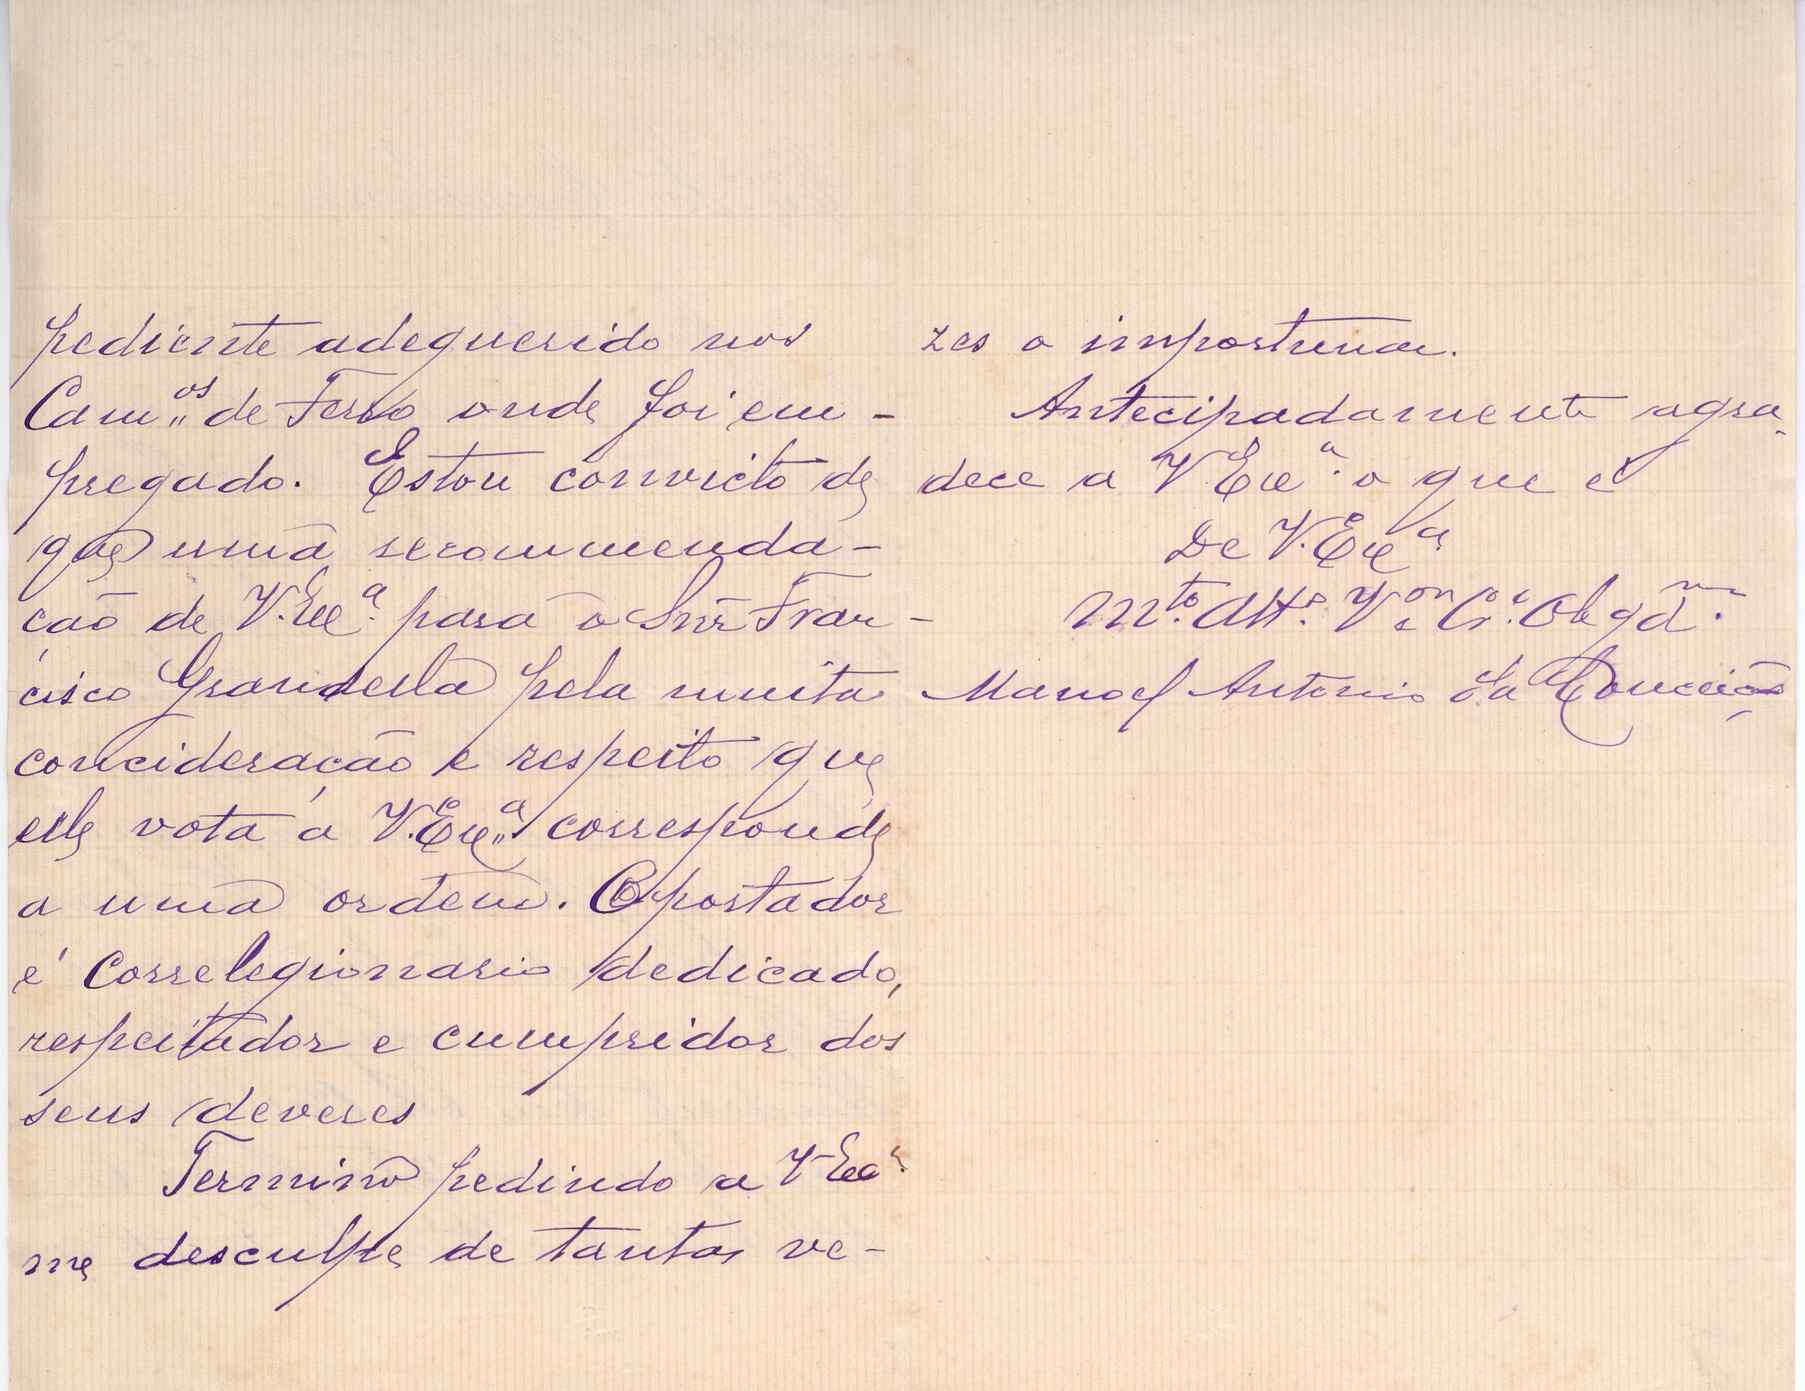 pediente adequerido nos
Cam.os de Ferro onde foi em-
pregado. Estou convicto de
que uma recommenda-
ção de V. Exa. para o Snr Fran-
cisco Grandella pela muita
concideração e respeito que
elle vota á V. Exa. corresponde
a uma ordem. O portador
é Correlegionario dedicado,
respeitador e cumpridor dos
seus deveres
Termino pedindo a V Exa.
me desculpe de tantas ve-
zes o importunar.
Antecipadamente agra-
dece a V Exa. o que é
De V. Exa
Mto. Atto. Vor e Cro. Obgdmo.
Manoel Antonio da Conceição